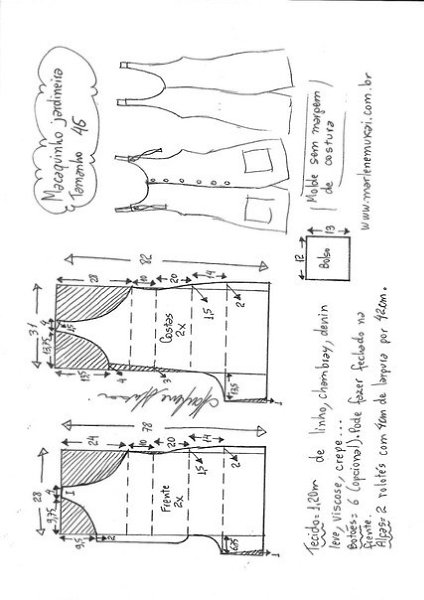 Macaquinho jardineira
Tamanho 46
Molde sem margem
de costura
www.marlenemukai.com.br
13
12
Bolso
82
28
10
20
14
31
4
13,75
1,5
2
Costas
2x
4
3
13,5
1
78
24
10
20
14
28
4
9,75
1
1,5
2
Frente
2x
9,5
2
6,75
1
Tecido = 1,20m de linho, chambray, denin
leve, viscose, crepe...
Botões = 6 (opcional). Pode fazer fechado na
frente.
Alças = 2 rolotês com 4cm de largura por 42cm.